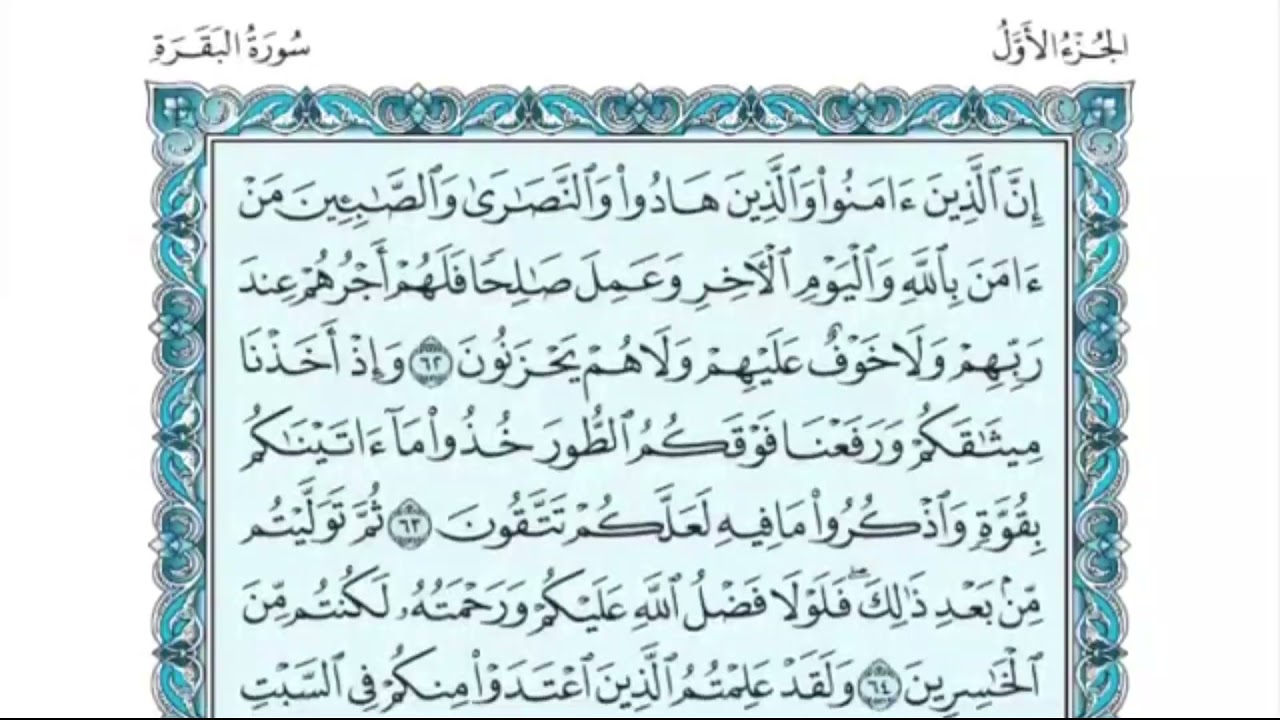 الجُزْءُ الأَوَّلُ
سُورَةُ البَقَرَةِ
إِنَّ ٱلَّذِينَ ءَامَنُوا۟ وَٱلَّذِينَ هَادُوا۟ وَٱلنَّصَٰرَىٰ وَٱلصَّٰبِـِٔينَ مَنْ
ءَامَنَ بِٱللَّهِ وَٱلْيَوْمِ ٱلْـَٔاخِرِ وَعَمِلَ صَٰلِحًا فَلَهُمْ أَجْرُهُمْ عِندَ
رَبِّهِمْ وَلَا خَوْفٌ عَلَيْهِمْ وَلَا هُمْ يَحْزَنُونَ ٦٢ وَإِذْ أَخَذْنَا
مِيثَٰقَكُمْ وَرَفَعْنَا فَوْقَكُمُ ٱلطُّورَ خُذُوا۟ مَآ ءَاتَيْنَٰكُم
بِقُوَّةٍ وَٱذْكُرُوا۟ مَا فِيهِ لَعَلَّكُمْ تَتَّقُونَ ٦٣ ثُمَّ تَوَلَّيْتُم
مِّنۢ بَعْدِ ذَٰلِكَ ۖ فَلَوْلَا فَضْلُ ٱللَّهِ عَلَيْكُمْ وَرَحْمَتُهُۥ لَكُنتُم مِّنَ
ٱلْخَٰسِرِينَ ٦٤ وَلَقَدْ عَلِمْتُمُ ٱلَّذِينَ ٱعْتَدَوْا۟ مِنكُمْ فِى ٱلسَّبْتِ